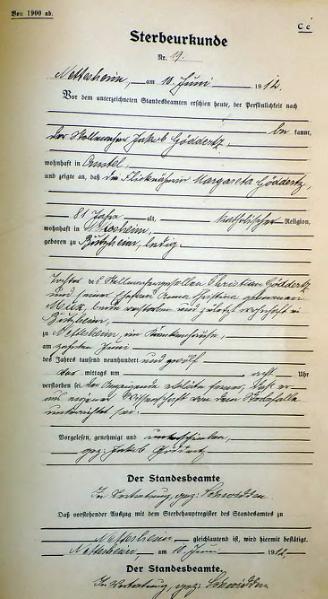 Vor 1900 ab.
C c
Sterbeurkunde
Nr. 19.
Nettersheim, am 10. Juni 1912.
Vor dem unterzeichneten Standesbeamten erschien heute, der Persönlichkeit nach
be kannt,
der Jakob Göddertz,
wohnhaft in
und zeigte an, daß die Margareta Göddertz,
81 Jahre alt, katholischer Religion,
wohnhaft in
geboren zu ledig,
Tochter des Christian Göddertz
und seiner Ehefrau Anna geborenen
beide verstorben und zuletzt wohnhaft in
zu Nettersheim, im Krankenhause,
am zehnten Juni
des Jahres tausend neunhundert und zwölf
mittags um acht Uhr
verstorben sei. Der Anzeigende erklärte ferner, daß er
aus eigener Wissenschaft von dem Todesfalle
unterrichtet sei.
Vorgelesen, genehmigt und unterschrieben,
gez. Jakob Göddertz
Der Standesbeamte
In Vertretung, gez.
Daß vorstehender Auszug mit dem Sterbehauptregister des Standesamtes zu
Nettersheim gleichlautend ist, wird hiermit bestätigt.
Nettersheim, am 10. Juni 1912.
Der Standesbeamte.
In Vertretung, gez.